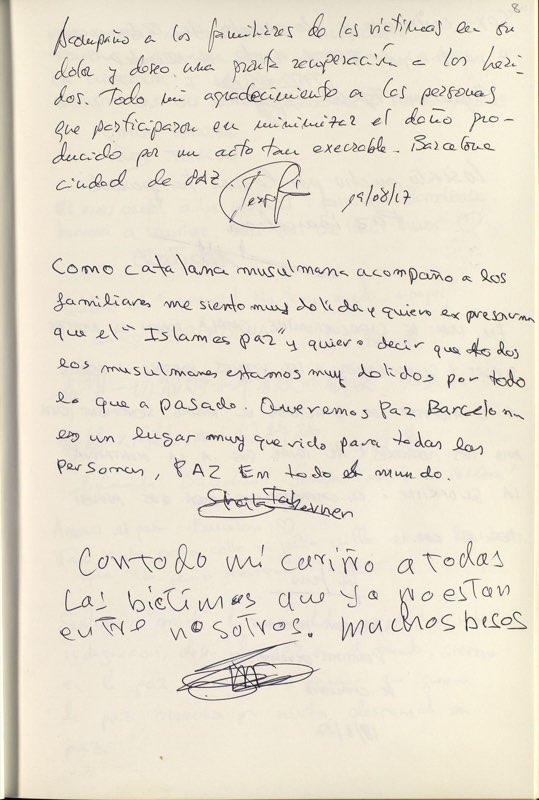 8
Acompaño a los familiares de las victimas en su
dolor y deseo una pronta recuperación a los heri-
dos. Todo mi agradecimiento a las personas
que participaron en minimizar el daño pro-
ducido por un acto tan execrable. Barcelona
ciudad de PAZ 19/08/17
Como catalana musulmana acompaño a los
familiares me siento muy dolida y quiero expresarme
que el "Islam es paz" y quiero decir que todos
los musulmanes estamos muy dolidos por todo
lo que a pasado. Queremos Paz Barcelona
es un lugar muy querido para todas las
personas, PAZ En todo el mundo.
Con todo mi cariño a todas
Las bictimas que ya no estan
entre nosotros. muchos besos